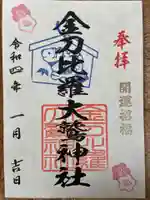 奉拝
開運招福
金刀比羅大鷲神社
令和四年 一月 吉日